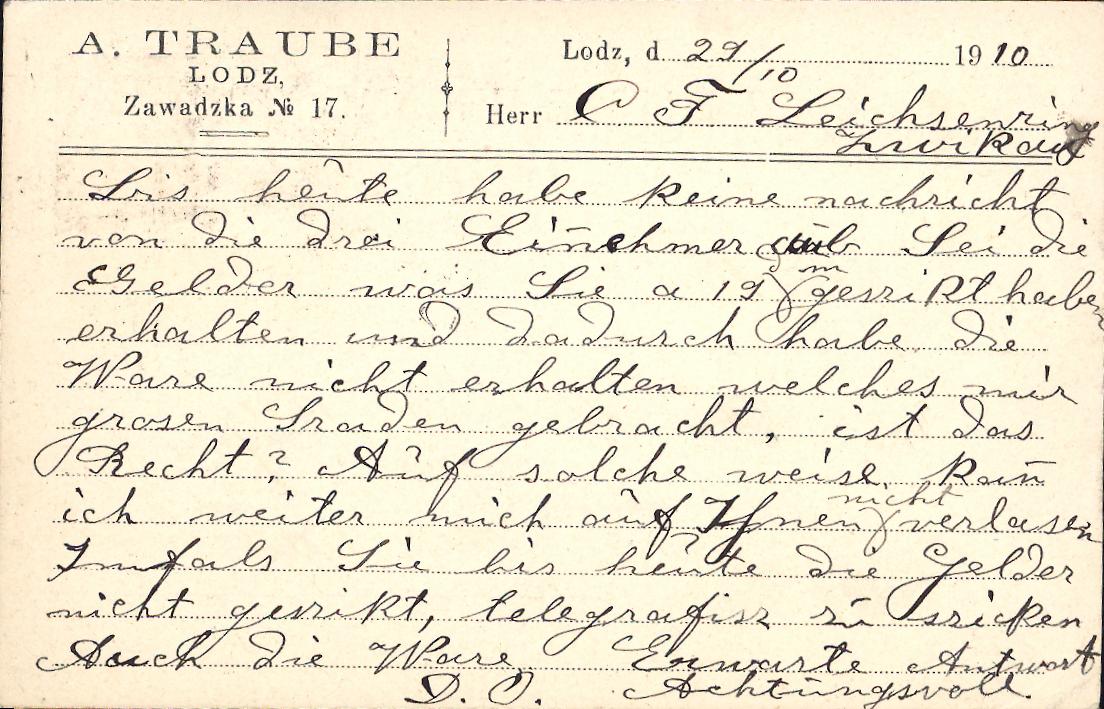 A. TRAUBE
LODZ,
Zawadzka № 17.
Lodz, d. 29/10 1910
Herr C F Leichsenring
Zwikau
Bis heute habe keine nachricht
von die drei Einehmer ob Sei die
Gelder was Sie a 19 m gesrikt haben
erhalten und dadurch habe die
Ware nicht erhalten welches mir
grosen Sraden gebracht, ist das
Recht? Auf solche weise kan̄
ich weiter mich auf Ihnen nicht verlasen
Imfals Sie bis heute die Gelder
nicht gesrikt, telegrafisr zu sricken
Auch die Ware. Erwarte Antwort
D. O. Achtungsvoll.